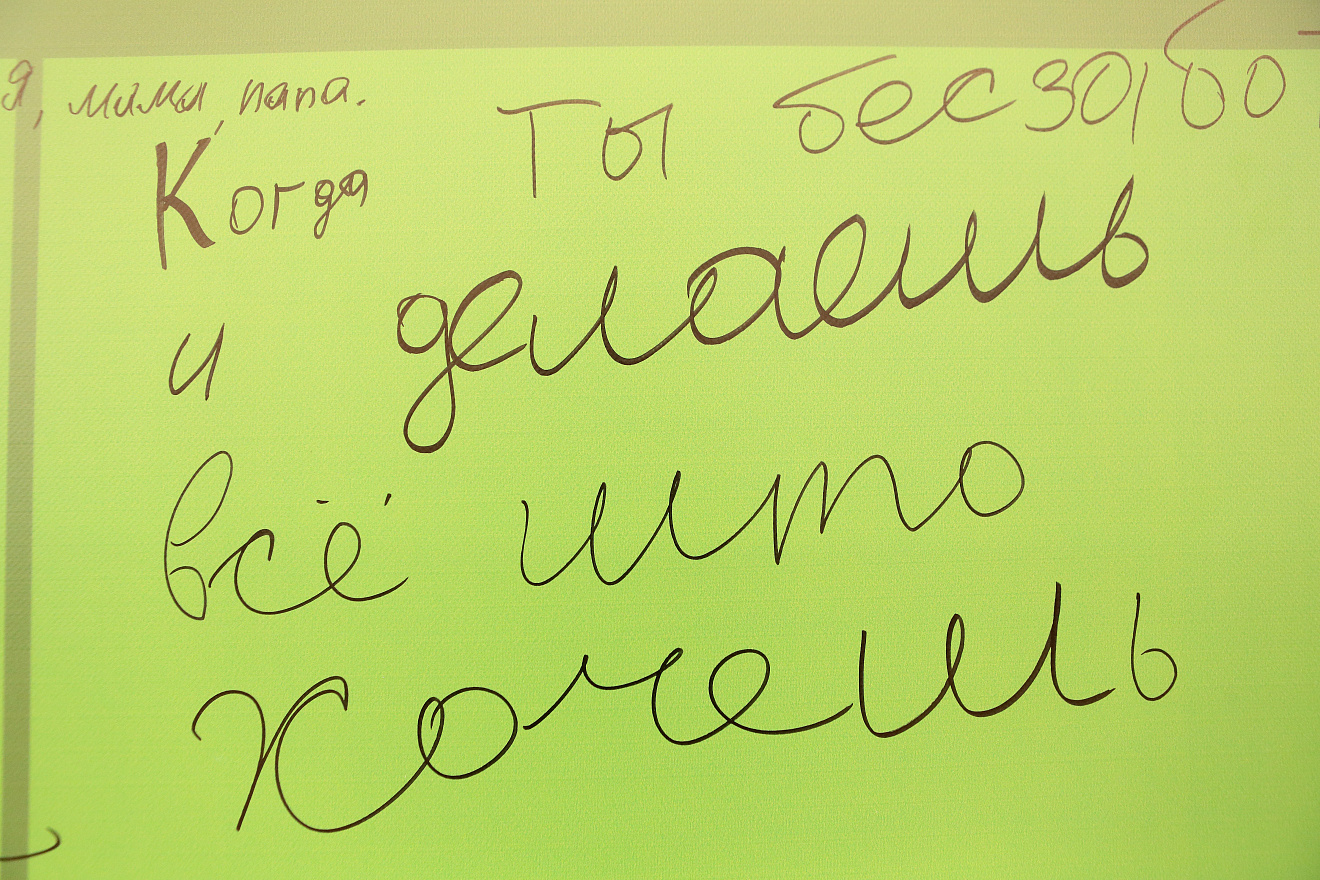 я, мама, папа.
Когда ты бесзабо
и делаешь
всё што
хочешь